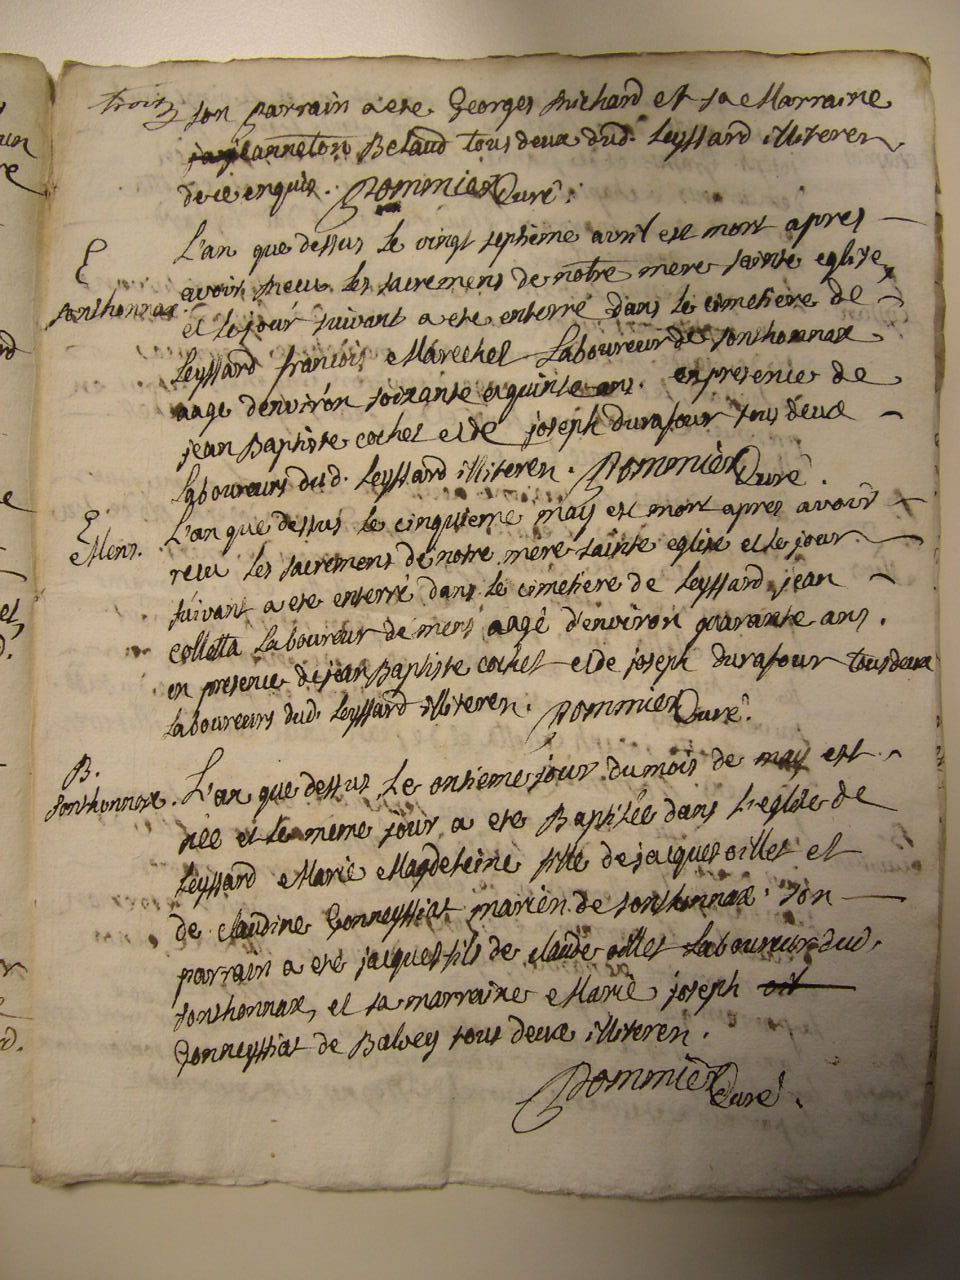 trois
son parrain a ete Georges Richard et sa Marraine
jeanneton Belaud tous deux dud. Leyssard illiteren
de ce enquis. Pommier Curé.
E
sonthonnax.
L'an que dessus le vingt septième avril est mort apres
avoir receu les sacremens de notre mere sainte eglise,
et le jour suivant a ete enterré dans le cimetiere de
Leyssard françois Marechel Laboureur de sonthonnax
aage d'environ soixante et quinze ans. en presence de
jean Baptiste cochet et de joseph durafour tous deux
laboureurs dud. Leyssard illiteren. Pommier Curé.
E
Mens.
L'an que dessus le cinquieme may est mort apres avoir
receu les sacremens de notre mere sainte eglise et le jour
suivant a ete enterré dans le cimetiere de Leyssard jean
colletta Laboureur de mens aagé d'environ quarante ans.
en presence de jean Baptiste cochet et de joseph durafour tous deux
laboureurs dud. Leyssard illiteren. Pommier Curé.
B.
sonthonnax.
L'an que dessus le onsieme jour du mois de may est
née et le meme jour a ete Baptisée dans l'eglise de
Leyssard Marie Magdeleine fille de jacques oillet et
de claudine Gonneyssiat marién de sonthonnax. son
parrain a eté jacques fils de claude oillet laboureur dud.
sonthonnax, et sa marraine Marie joseph oil
Gonneyssiat de Balvey tous deux illiteren.
Pommier Curé.